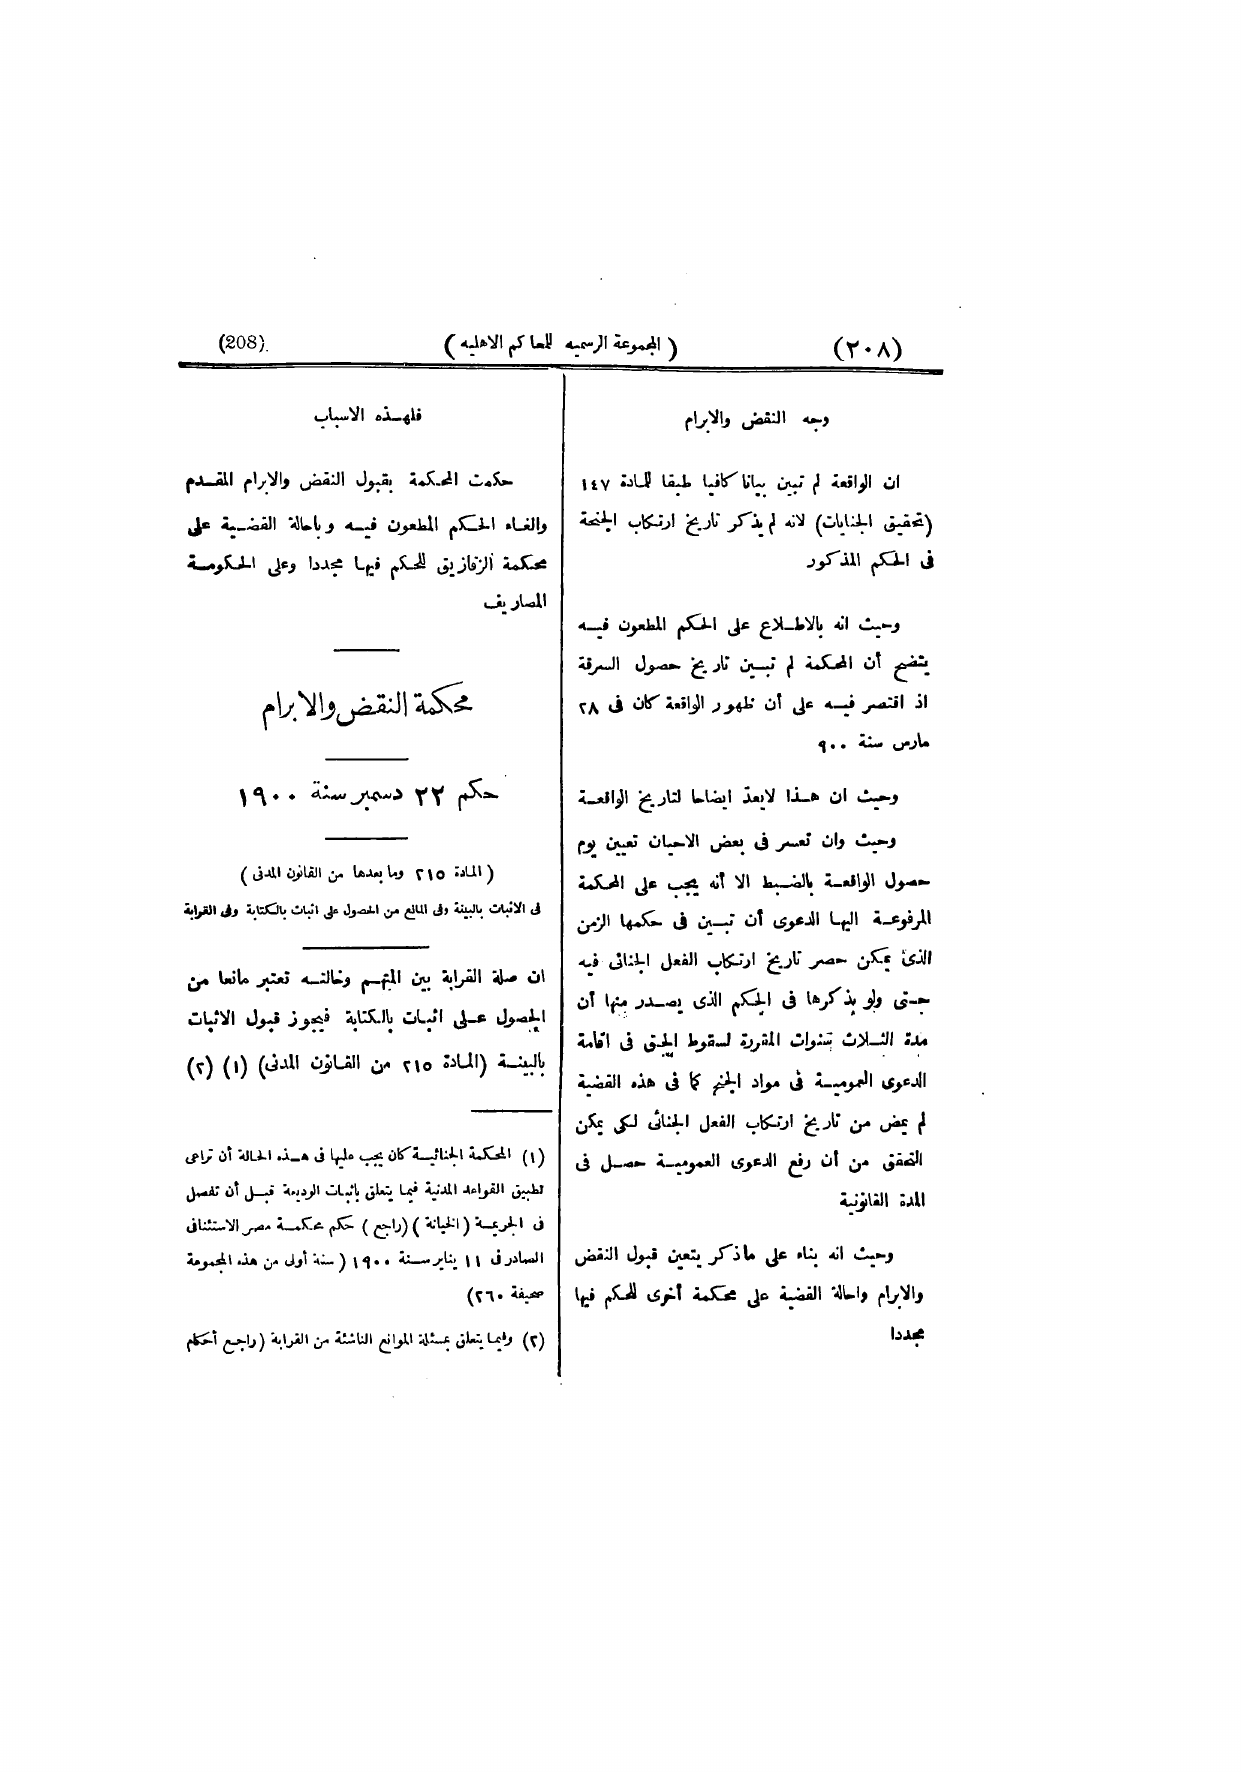 (٢٠٨) ( المجموعة الرسميه للمحاكم الاهليه ) (208)
وجه النقض والابرام
ان الواقعة لم تبين بيانا كافيا طبقا للمادة ١٤٧
(تحقيق الجنايات) لانه لم يذكر تاريخ ارتكاب الجنحة
فى الحكم المذكور
وحيث انه بالاطلاع على الحكم المطعون فيه
يتضح أن المحكمة لم تبين تاريخ حصول السرقة
اذ اقتصر فيه على أن ظهور الواقعة كان فى ٢٨
مارس سنة ٩٠٠
وحيث ان هذا لايعدّ ايضاحا لتاريخ الواقعة
وحيث وان تعسر فى بعض الاحيان تعيين يوم
حصول الواقعة بالضبط الا أنه يجب على المحكمة
المرفوعة اليها الدعوى أن تبين فى حكمها الزمن
الذى يمكن حصر تاريخ ارتكاب الفعل الجنائى فيه
حتى ولو يذكرها فى الحكم الذى يصدر منها أن
مدة الثلاث سنوات المقررة لسقوط الحق فى اقامة
الدعوى العمومية فى مواد الجنح كما فى هذه القضية
لم يمض من تاريخ ارتكاب الفعل الجنائى لكى يمكن
التحقق من أن رفع الدعوى العمومية حصل فى
المدة القانونية
وحيث انه بناء على ماذكر يتعين قبول النقض
والابرام واحالة القضية على محكمة أخرى للحكم فيها
مجددا
فلهذه الاسباب
حكمت المحكمة بقبول النقض والابرام المقدم
والغاء الحكم المطعون فيه وباحالة القضية على
محكمة الزقازيق للحكم فيها مجددا وعلى الحكومة
المصاريف
محكمة النقض والابرام
حكم ٢٢ دسمبر سنة ١٩٠٠
( المادة ٢١٥ وما بعدها من القانون المدنى )
فى الاثبات بالبينة وفى المانع من الحصول على اثبات بالكتابة وفى القرابة
ان صلة القرابة بين المتهم وخالته تعتبر مانعا من
الحصول على اثبات بالكتابة فيجوز قبول الاثبات
بالبينة (المادة ٢١٥ من القانون المدنى) (١) (٢)
(١) المحكمة الجنائية كان يجب عليها فى هذه الحالة أن تراعى
تطبيق القواعد المدنية فيما يتعلق باثبات الوديعة قبل أن تفصل
فى الجريمة (الخيانة) (راجع) حكم محكمة مصر الاستئنافى
الصادر فى ١١ يناير سنة ١٩٠٠ (سنة أولى من هذه المجموعة
صحيفة ٢٦٠)
(٢) وفيما يتعلق بمسئلة الموانع الناشئة من القرابة (راجع أحكام